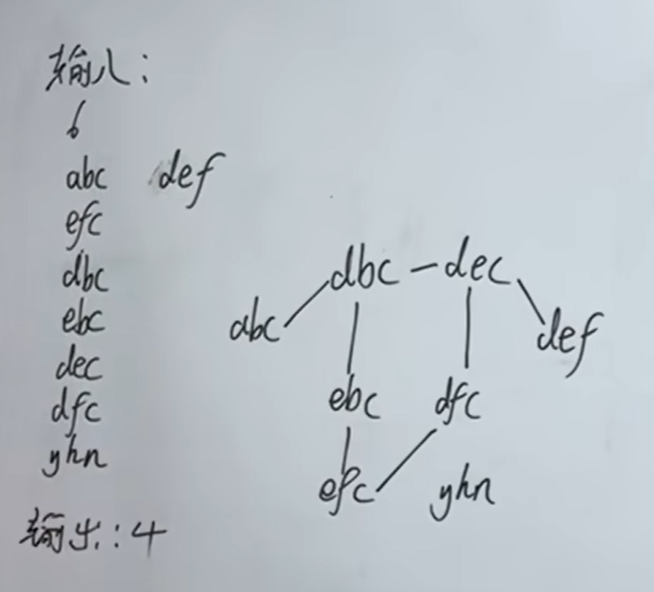 输入:
6
abc def
efc
dbc
ebc
dec
dfc
yhn
输出:4
dbc - dec
abc
def
ebc dfc
efc yhn